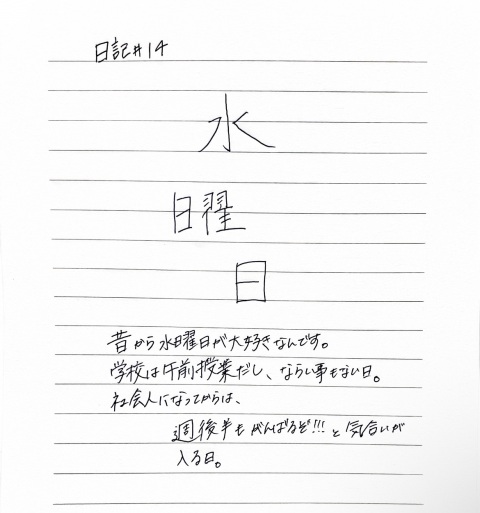 日記#14
水
曜
日
昔から水曜日が大好きなんです。
学校は午前授業だし、ならい事もない日。
社会人になってからは、
週後半もがんばるぞ!!!と気合いが
入る日。